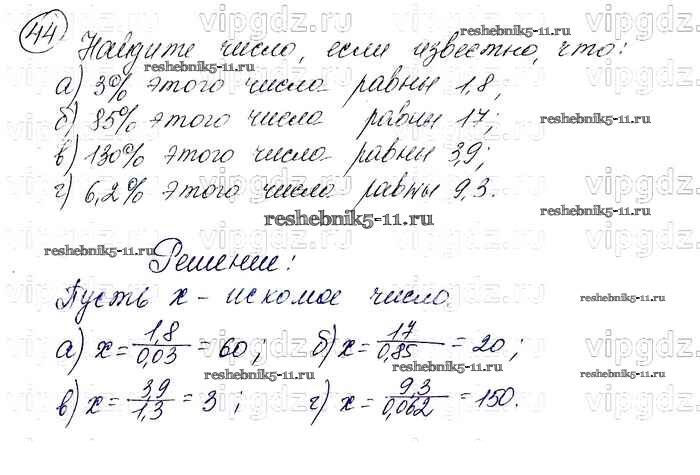 44 Найдите число, если известно, что:
а) 3% этого числа равны 1,8;
б) 85% этого числа равны 17;
в) 130% этого числа равны 3,9;
г) 6,2% этого числа равны 9,3.
Решение:
Пусть х - искомое число
а) x = 1,8 / 0,03 = 60; б) x = 17 / 0,85 = 20;
в) x = 3,9 / 1,3 = 3; г) x = 9,3 / 0,062 = 150.
vipgdz.ru
reshebnik5-11.ru